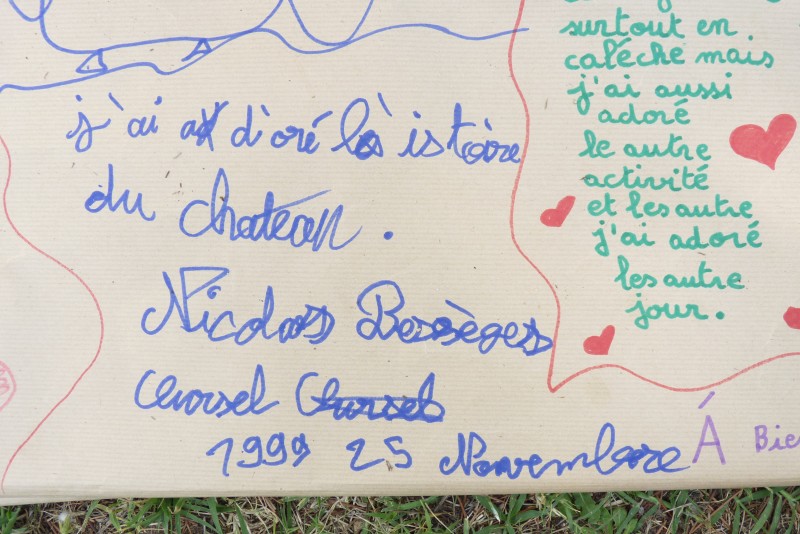 j'ai ad'oré là istoire
du chateau.
Nicolas Bessèges
1999 25 Novembre
surtout en
calèche mais
j'ai aussi
adoré
le autre
activité
et les autre
j'ai adoré
les autre
jour.
À Bie